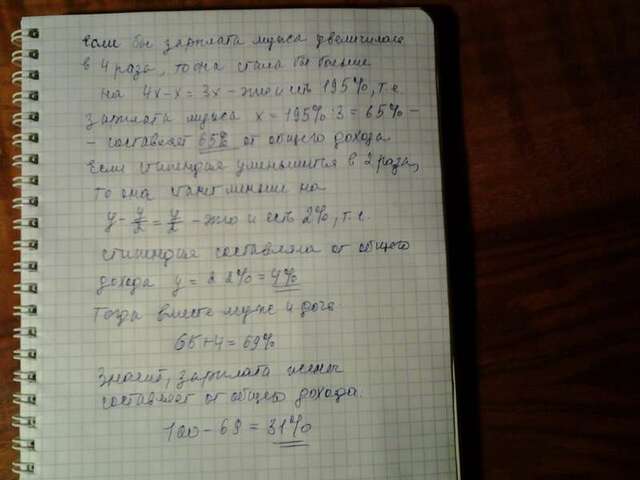 если бы зарплата мужа увеличилась
в 4 раза, то она стала бы больше
на 4x-x = 3x - это и есть 195%, т.е.
зарплата мужа x = 195% : 3 = 65% -
- составляет 65% от общего дохода
Если стипендия уменьшится в 2 раза,
то она станет меньше на
y - y/2 = y/2 - это и есть 2%, т.е.
стипендия составляла от общего
дохода y = 2·2% = 4%
Тогда вместе муж и дочь
65+4 = 69%
Значит, зарплата жены
составляет от общего дохода.
100 - 69 = 31%